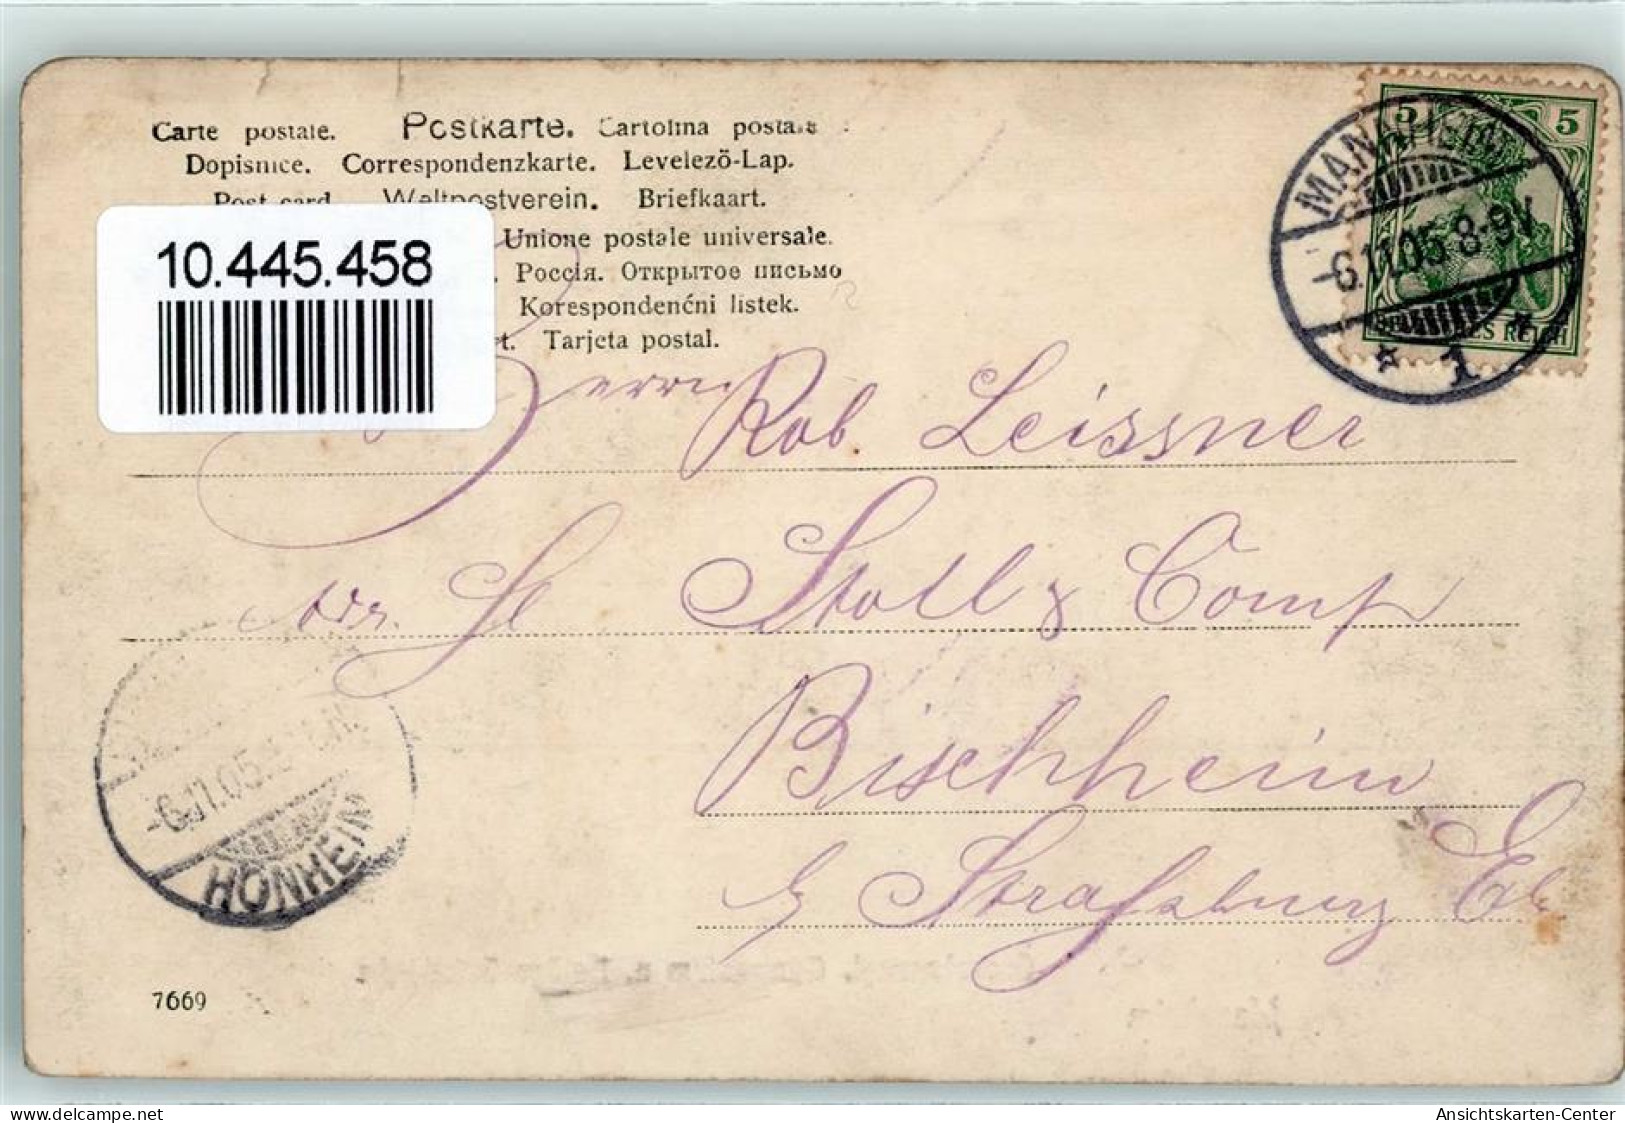 Carte postale. Postkarte. Cartolina postale
Dopisnice. Correspondenzkarte. Levelezö-Lap.
Post card. Weltpostverein. Briefkaart.
Unione postale universale.
Россія. Открытое письмо
Korespondenćni listek.
t. Tarjeta postal.
10.445.458
5 5
DEUTSCHES REICH
MANNHEIM
-6.11.05 8-9V
* 1 *
Herrn Rob. Leissner
adr. H Stoll & Comp
Bischheim
b/ Straßburg Els.
-6.11.05.
HÖNHEIM
7669
www.delcampe.net
Ansichtskarten-Center